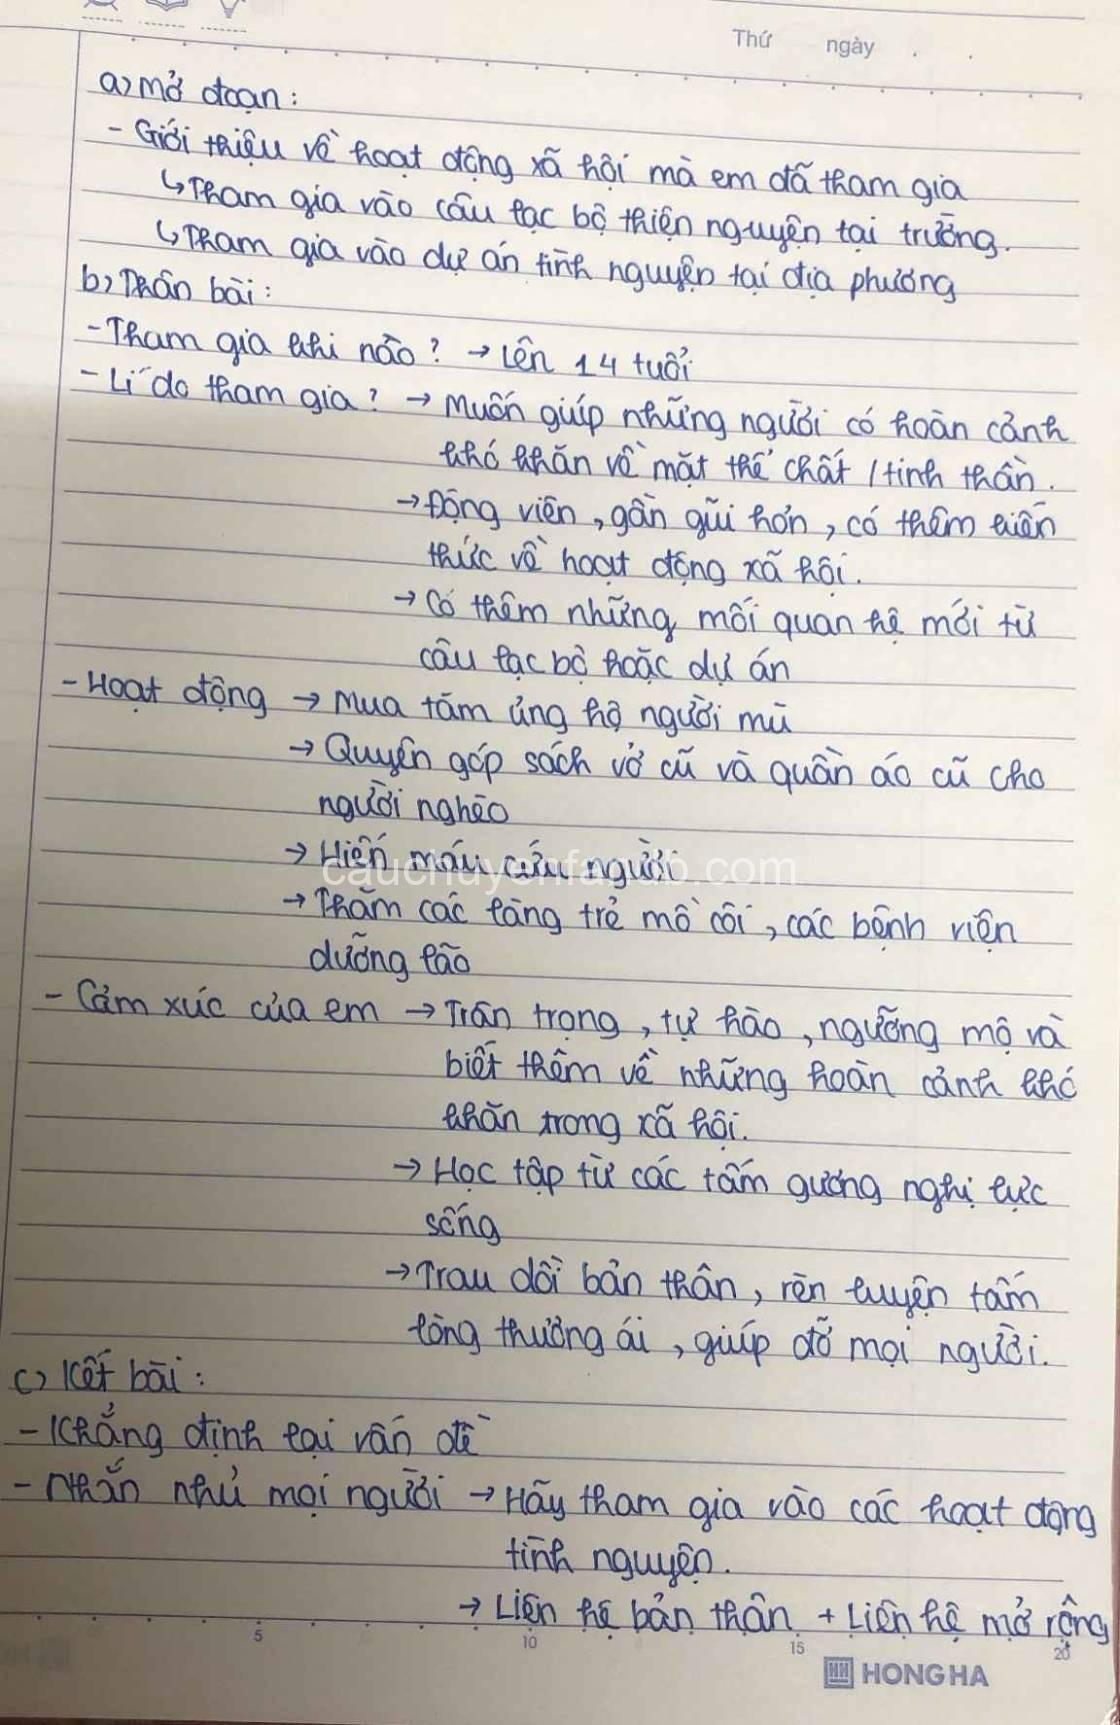 Thứ ngày
a) Mở đoạn:
- Giới thiệu về hoạt động xã hội mà em đã tham gia
↳ Tham gia vào câu lạc bộ thiện nguyện tại trường.
↳ Tham gia vào dự án tình nguyện tại địa phương
b) Thân bài:
- Tham gia khi nào? → Lên 14 tuổi
- Lí do tham gia? → Muốn giúp những người có hoàn cảnh
khó khăn về mặt thể chất / tinh thần.
→ Động viên, gần gũi hơn, có thêm kiến
thức về hoạt động xã hội.
→ Có thêm những mối quan hệ mới từ
câu lạc bộ hoặc dự án
- Hoạt động → Mua tăm ủng hộ người mù
→ Quyên góp sách vở cũ và quần áo cũ cho
người nghèo
→ Hiến máu cứu người
cauchuyenfabub.com
→ Thăm các làng trẻ mồ côi, các bệnh viện
dưỡng lão
- Cảm xúc của em → Trân trọng, tự hào, ngưỡng mộ và
biết thêm về những hoàn cảnh khó
khăn trong xã hội.
→ Học tập từ các tấm gương nghị lực
sống
→ Trau dồi bản thân, rèn luyện tấm
lòng thương ái, giúp đỡ mọi người.
c) Kết bài:
- Khẳng định lại vấn đề
- Nhắn nhủ mọi người → Hãy tham gia vào các hoạt động
tình nguyện.
→ Liên hệ bản thân + Liên hệ mở rộng
5 10 15 20
HONG HA